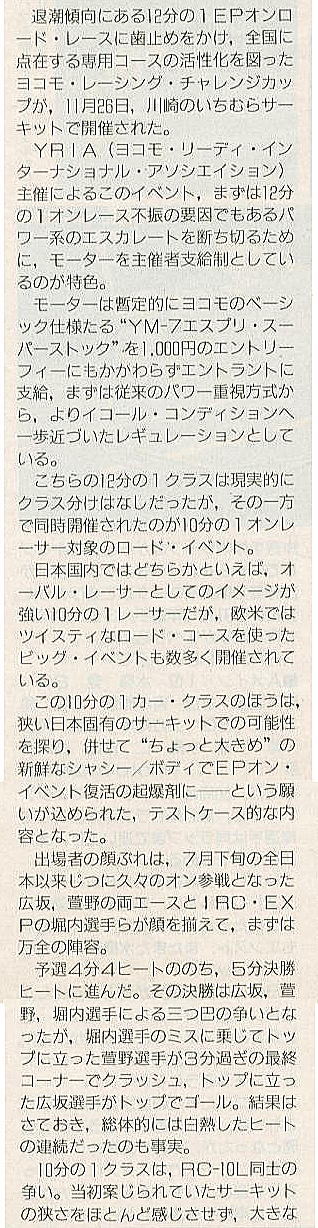 退潮傾向にある12分の1EPオンロ
ード・レースに歯止めをかけ，全国に
点在する専用コースの活性化を図った
ヨコモ・レーシング・チャレンジカッ
プが，11月26日，川崎のいちむらサー
キットで開催された。
YRIA（ヨコモ・リーディ・イン
ターナショナル・アソシエイション）
主催によるこのイベント，まずは12分
の1オンレース不振の要因でもあるパ
ワー系のエスカレートを断ち切るため
に，モーターを主催者支給制としてい
るのが特色。
モーターは暫定的にヨコモのベーシ
ック仕様たる“YM-7エスプリ・スー
パーストック”を1,000円のエントリー
フィーにもかかわらずエントラントに
支給，まずは従来のパワー重視方式か
ら，よりイコール・コンディションへ
一歩近づいたレギュレーションとして
いる。
こちらの12分の1クラスは現実的に
クラス分けはなしだったが，その一方
で同時開催されたのが10分の1オンレ
ーサー対象のロード・イベント。
日本国内ではどちらかといえば，オ
ーバル・レーサーとしてのイメージが
強い10分の1レーサーだが，欧米では
ツイスティなロード・コースを使った
ビッグ・イベントも数多く開催されて
いる。
この10分の1カー・クラスのほうは，
狭い日本固有のサーキットでの可能性
を探り，併せて“ちょっと大きめ”の
新鮮なシャシー／ボディでEPオン・
イベント復活の起爆剤に――という願
いが込められた，テストケース的な内
容となった。
出場者の顔ぶれは，7月下旬の全日
本以来じつに久々のオン参戦となった
広坂，萱野の両エースとIRC・EX
Pの堀内選手らが顔を揃えて，まずは
万全の陣容。
予選4分4ヒートののち，5分決勝
ヒートに進んだ。その決勝は広坂，萱
野，堀内選手による三つ巴の争いとな
ったが，堀内選手のミスに乗じてトッ
プに立った萱野選手が3分過ぎの最終
コーナーでクラッシュ，トップに立っ
た広坂選手がトップでゴール。結果は
さておき，総体的には白熱したヒート
の連続だったのも事実。
10分の1クラスは，RC-10L同士の
争い。当初案じられていたサーキット
の狭さをほとんど感じさせず，大きな